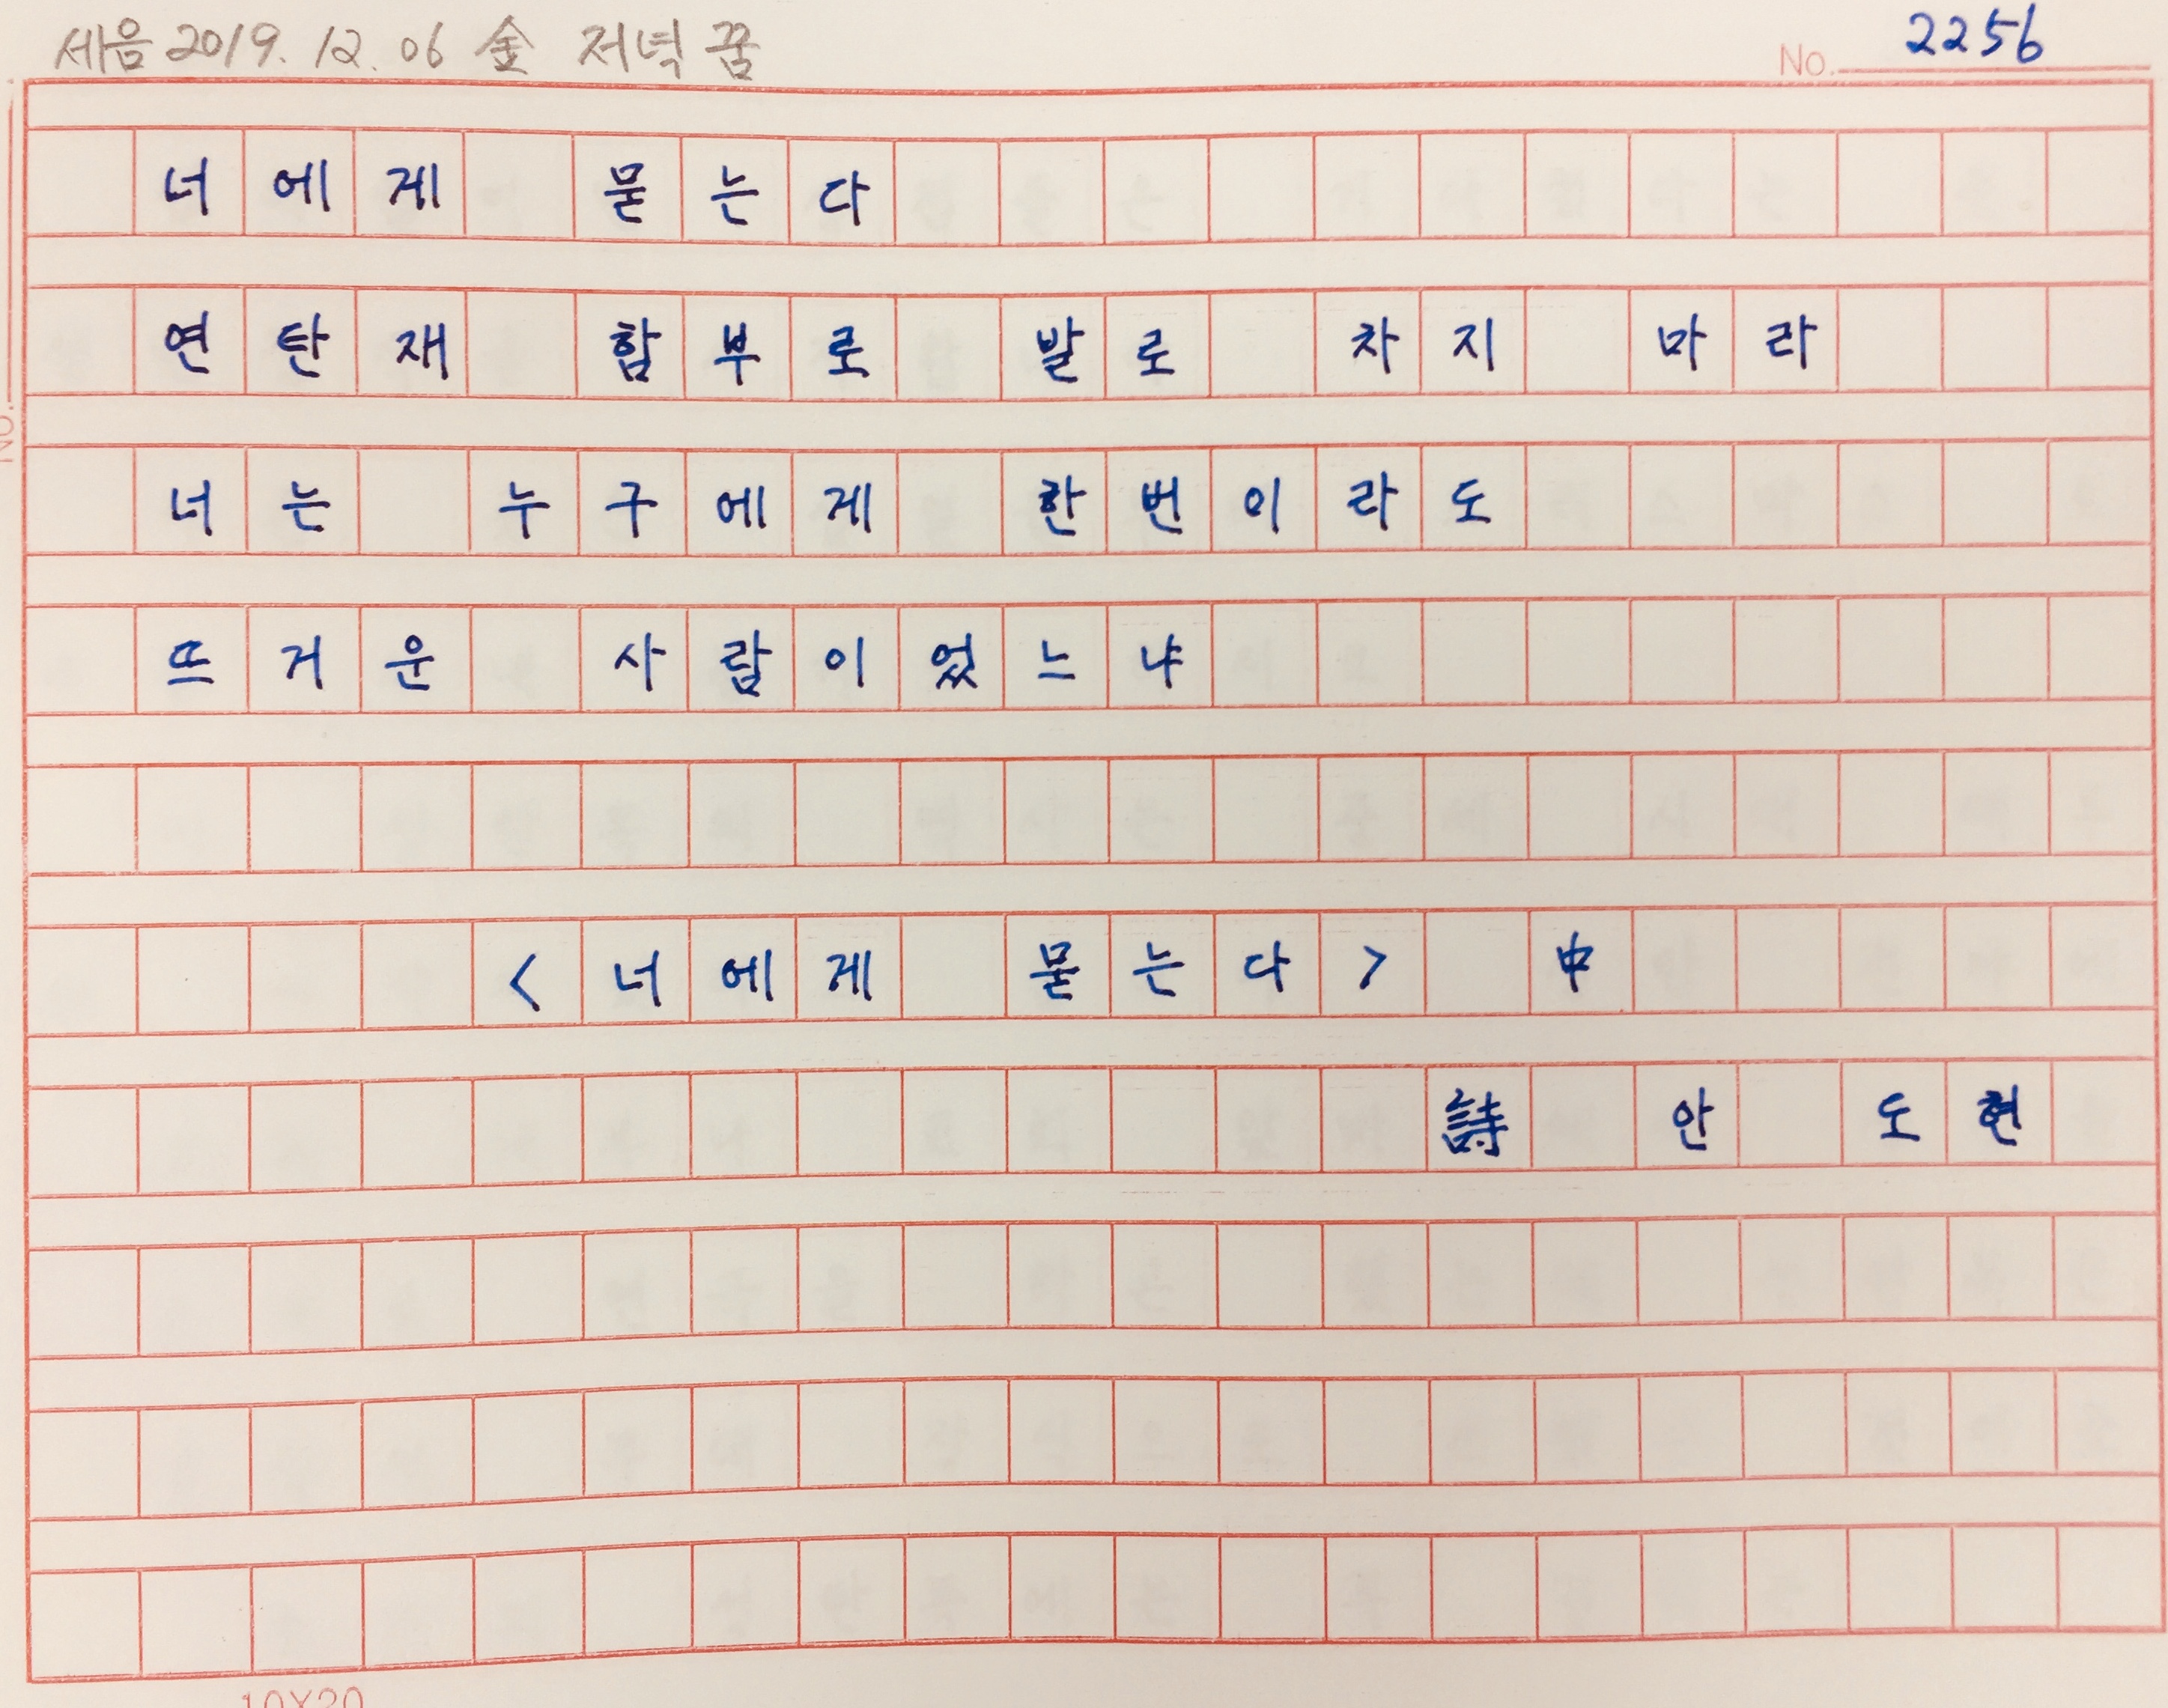 세음 2019. 12. 06 金 저녁 꿈
No. 2256
너에게 묻는다
연탄재 함부로 발로 차지 마라
너는 누구에게 한번이라도
뜨거운 사람이었느냐
<너에게 묻는다> 中
詩 안 도현
No.
10X20